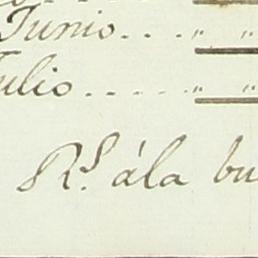 Junio... " "
ulio..... " "
R.s ála bu